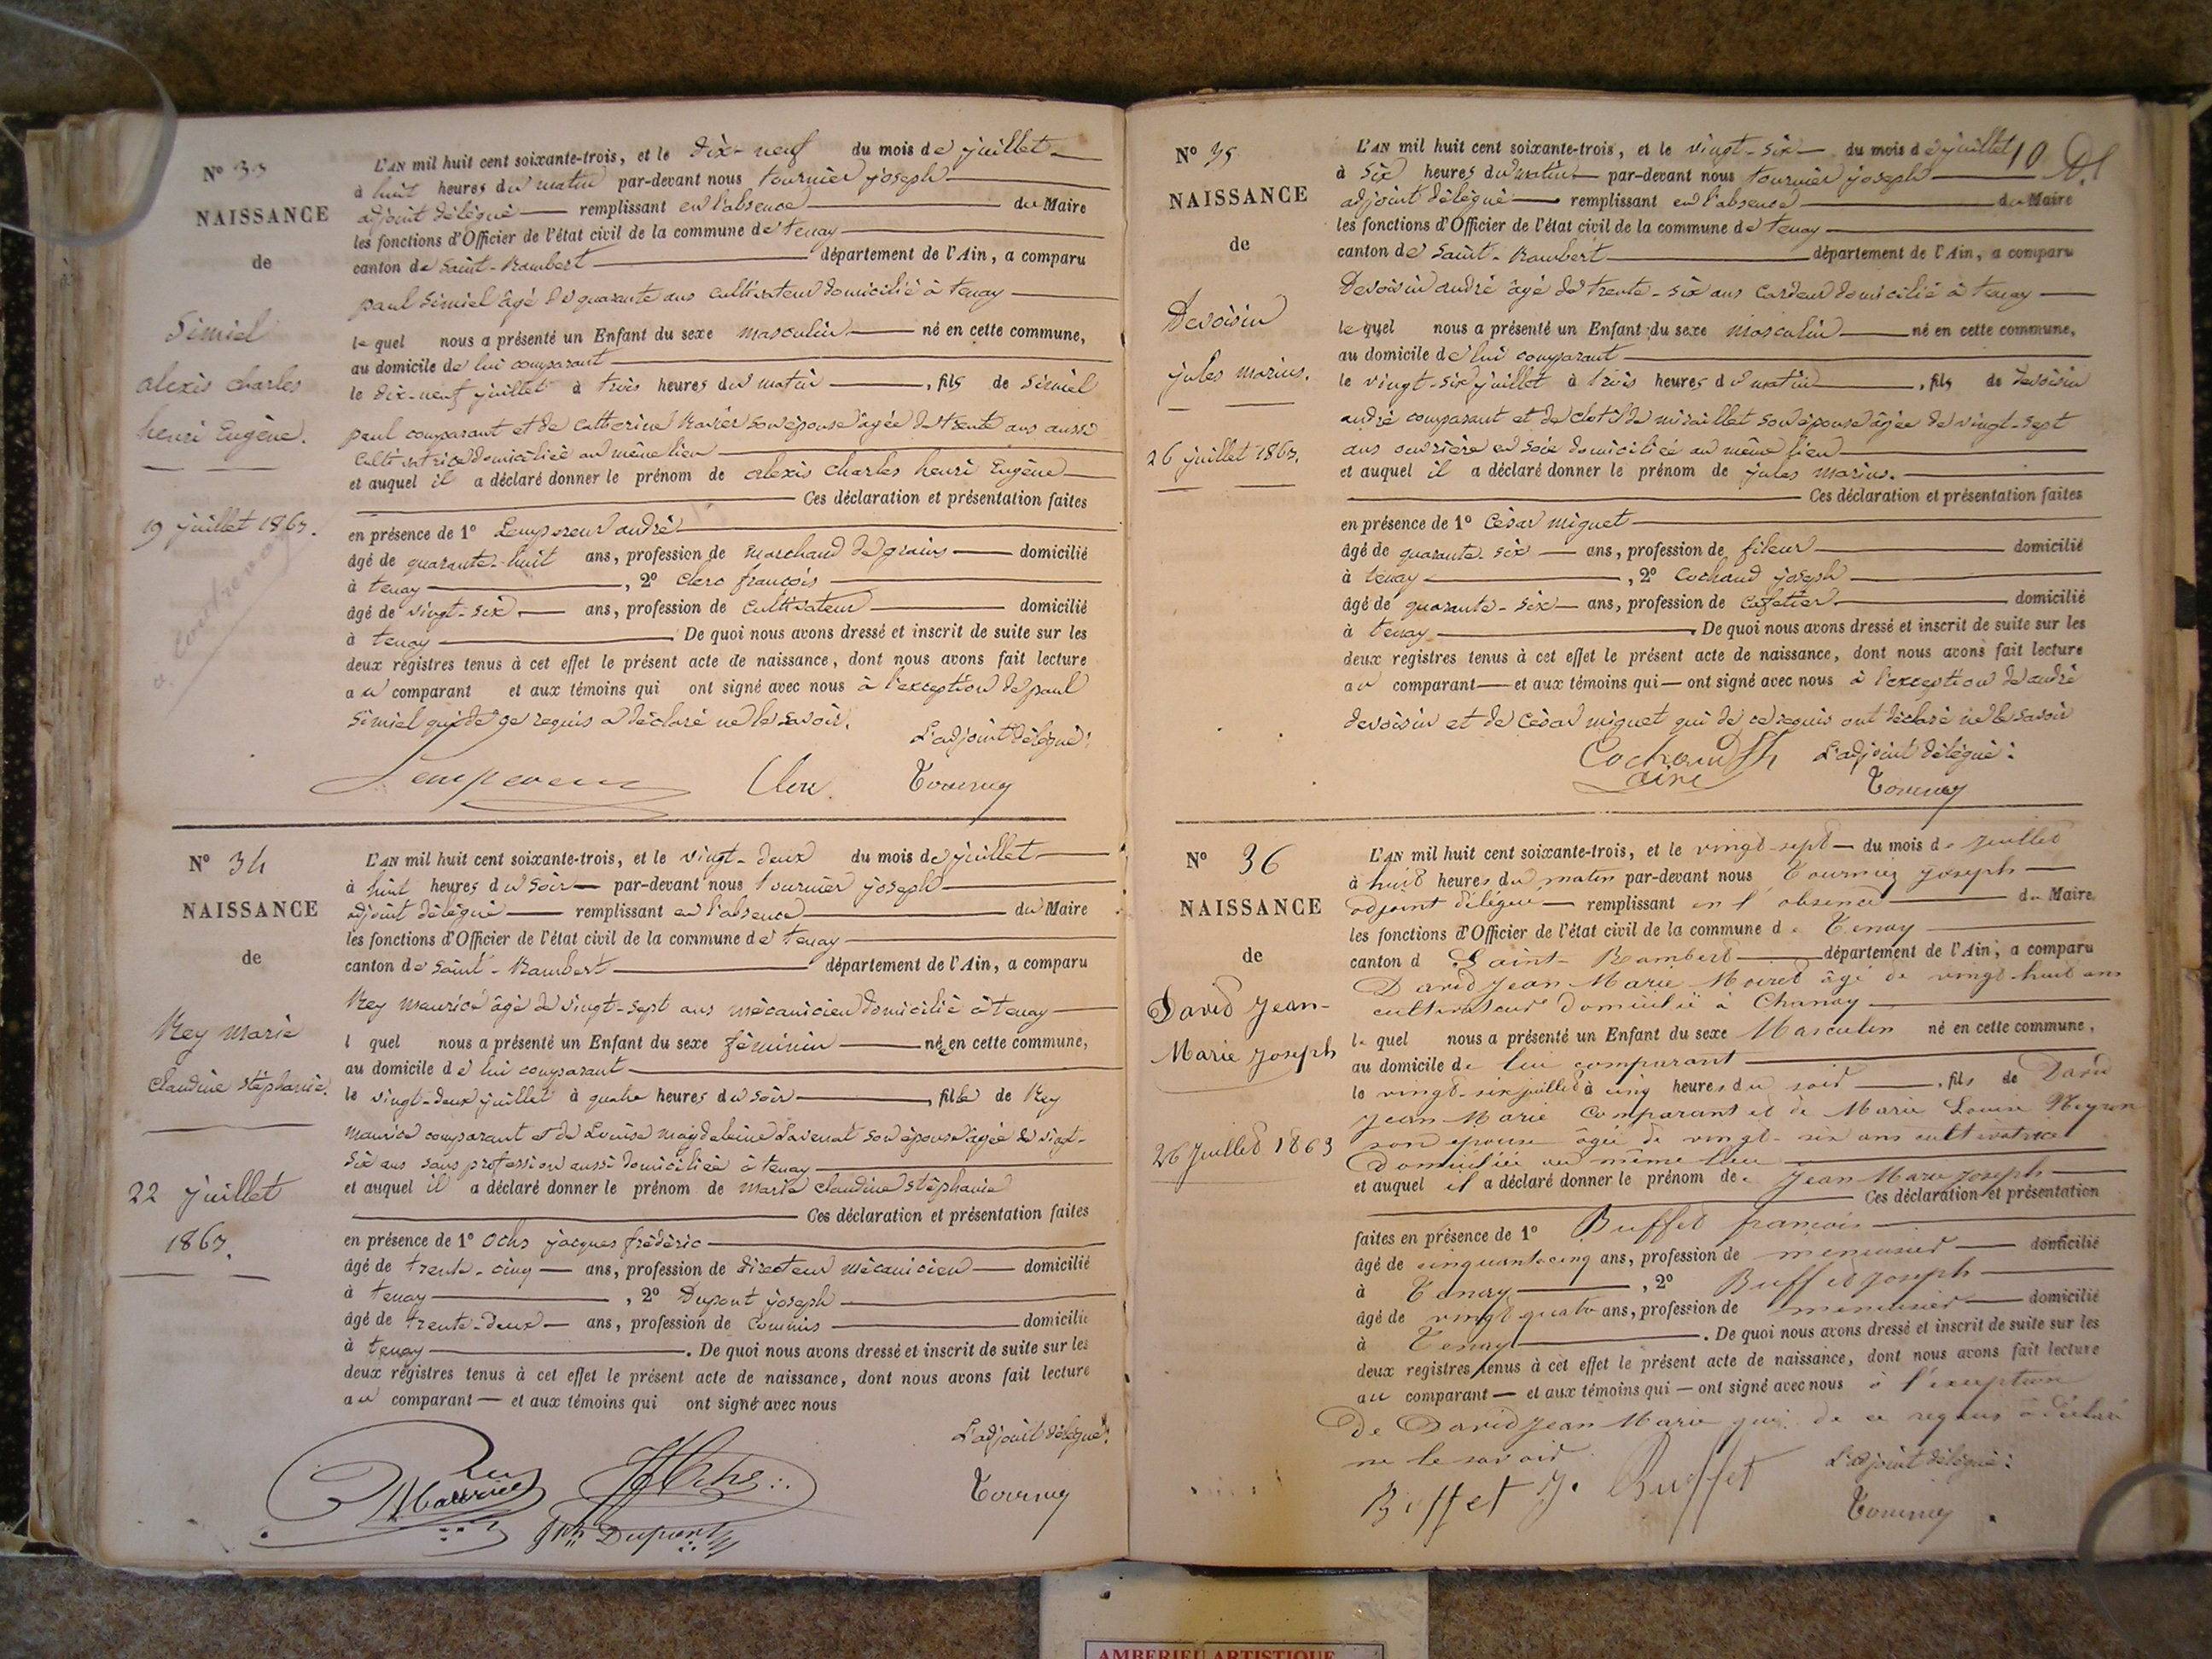 N° 33
NAISSANCE
de
Simiel
alexis charles
henri Eugène.
19 juillet 1863.
L'AN mil huit cent soixante-trois, et le dix-neuf du mois de juillet
à huit heures du matin par-devant nous tournier joseph
adjoint délégué remplissant en l'absence du Maire
les fonctions d'Officier de l'état civil de la commune de tenay
canton de Saint-Rambert département de l'Ain, a comparu
paul Simiel âgé de quarante ans cultivateur domicilié à tenay
lequel nous a présenté un Enfant du sexe masculin né en cette commune,
au domicile de lui comparant
le dix-neuf juillet à trois heures du matin, fils de Simiel
paul comparant et de catherine Ravier son épouse âgée de trente ans aussi
cultivatrice domiciliée au même lieu
et auquel il a déclaré donner le prénom de alexis charles henri Eugène
Ces déclaration et présentation faites
en présence de 1° Lempereur andré
âgé de quarante-huit ans, profession de marchand de grains domicilié
à tenay, 2° Clerc françois
âgé de vingt-six ans, profession de cultivateur domicilié
à tenay. De quoi nous avons dressé et inscrit de suite sur les
deux registres tenus à cet effet le présent acte de naissance, dont nous avons fait lecture
au comparant et aux témoins qui ont signé avec nous à l'exception de paul
Simiel qui de ce requis a déclaré ne le savoir.
L'adjoint délégué:
Lempereur Clerc Tournier
N° 34
NAISSANCE
de
Rey marie
claudine stéphanie.
22 juillet
1863.
L'AN mil huit cent soixante-trois, et le vingt-deux du mois de juillet
à huit heures du soir par-devant nous tournier joseph
adjoint délégué remplissant en l'absence du Maire
les fonctions d'Officier de l'état civil de la commune de tenay
canton de Saint-Rambert département de l'Ain, a comparu
Rey maurice âgé de vingt-sept ans mécanicien domicilié à tenay
l quel nous a présenté un Enfant du sexe féminin née en cette commune,
au domicile de lui comparant
le vingt-deux juillet à quatre heures du soir, fille de Rey
maurice comparant et de Louise magdeleine son épouse âgée de vingt-
six ans sans profession aussi domiciliée à tenay
et auquel il a déclaré donner le prénom de marie claudine stéphanie
Ces déclaration et présentation faites
en présence de 1° Ochs jacques frédéric
âgé de trente-cinq ans, profession de directeur mécanicien domicilié
à tenay, 2° Dupont joseph
âgé de trente-deux ans, profession de commis domicilié
à tenay. De quoi nous avons dressé et inscrit de suite sur les
deux registres tenus à cet effet le présent acte de naissance, dont nous avons fait lecture
au comparant et aux témoins qui ont signé avec nous
L'adjoint délégué:
Rey Maurice Ochs Tournier
Jph Dupont
10
N° 35
NAISSANCE
de
Devoisin
jules marius.
26 juillet 1863.
L'AN mil huit cent soixante-trois, et le vingt-six du mois de juillet
à six heures du matin par-devant nous tournier joseph
adjoint délégué remplissant en l'absence du Maire
les fonctions d'Officier de l'état civil de la commune de tenay
canton de Saint-Rambert département de l'Ain, a comparu
Devoisin andré âgé de trente-six ans cardeur domicilié à tenay
lequel nous a présenté un Enfant du sexe masculin né en cette commune,
au domicile de lui comparant
le vingt-six juillet à trois heures du matin, fils de devoisin
andré comparant et de clotilde miraillet son épouse âgée de vingt-sept
ans ouvrière en soie domiciliée au même lieu
et auquel il a déclaré donner le prénom de jules marius.
Ces déclaration et présentation faites
en présence de 1° César miguet
âgé de quarante-six ans, profession de fileur domicilié
à tenay, 2° Cochaud joseph
âgé de quarante-six ans, profession de cafetier domicilié
à tenay. De quoi nous avons dressé et inscrit de suite sur les
deux registres tenus à cet effet le présent acte de naissance, dont nous avons fait lecture
au comparant et aux témoins qui ont signé avec nous à l'exception de andré
devoisin et de César miguet qui de ce requis ont déclaré ne le savoir
L'adjoint délégué:
Cochaud Jh
aîné
Tournier
N° 36
NAISSANCE
de
David Jean-
Marie Joseph
26 Juillet 1863
L'AN mil huit cent soixante-trois, et le vingt-sept du mois de juillet
à huit heures du matin par-devant nous Tournier joseph
adjoint délégué remplissant en l'absence du Maire
les fonctions d'Officier de l'état civil de la commune de Tenay
canton d Saint-Rambert département de l'Ain, a comparu
David Jean Marie âgé de vingt-huit ans
cultivateur domicilié à Chanay
le quel nous a présenté un Enfant du sexe Masculin né en cette commune,
au domicile de lui comparant
le vingt-six juillet à cinq heures du soir, fils de David
Jean-Marie comparant et de Marie Louise Neyron
son épouse âgée de vingt-six ans cultivatrice
domiciliée au même lieu
et auquel il a déclaré donner le prénom de Jean Marie joseph
Ces déclaration et présentation
faites en présence de 1° Buffet françois
âgé de cinquante-cinq ans, profession de menuisier domicilié
à Tenay, 2° Buffet joseph
âgé de vingt quatre ans, profession de menuisier domicilié
à Tenay. De quoi nous avons dressé et inscrit de suite sur les
deux registres tenus à cet effet le présent acte de naissance, dont nous avons fait lecture
au comparant et aux témoins qui ont signé avec nous à l'exception
De David Jean Marie qui de ce requis a déclaré
ne le savoir.
L'adjoint délégué:
Buffet J. Buffet
Tournier
AMBERIEU ARTISTIQUE